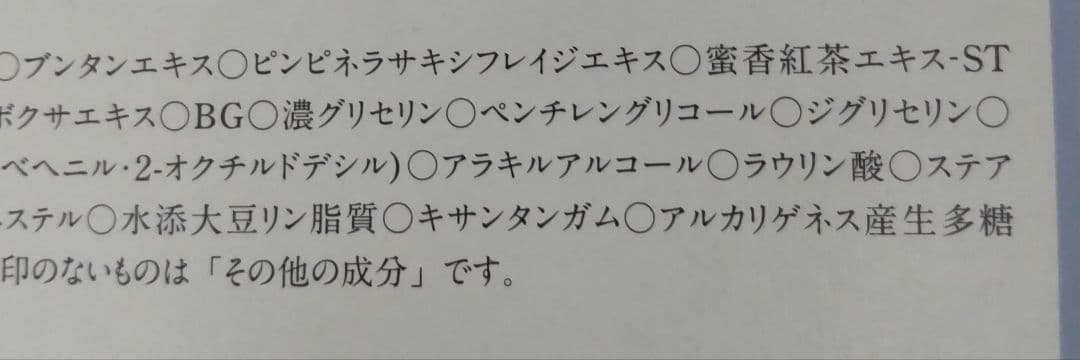 〇ブンタンエキス〇ピンピネラサキシフレイジエキス〇蜜香紅茶エキス-ST
ボクサエキス〇BG〇濃グリセリン〇ペンチレングリコール〇ジグリセリン〇
ベヘニル・2-オクチルドデシル)〇アラキルアルコール〇ラウリン酸〇ステア
ステル〇水添大豆リン脂質〇キサンタンガム〇アルカリゲネス産生多糖
印のないものは「その他の成分」です。